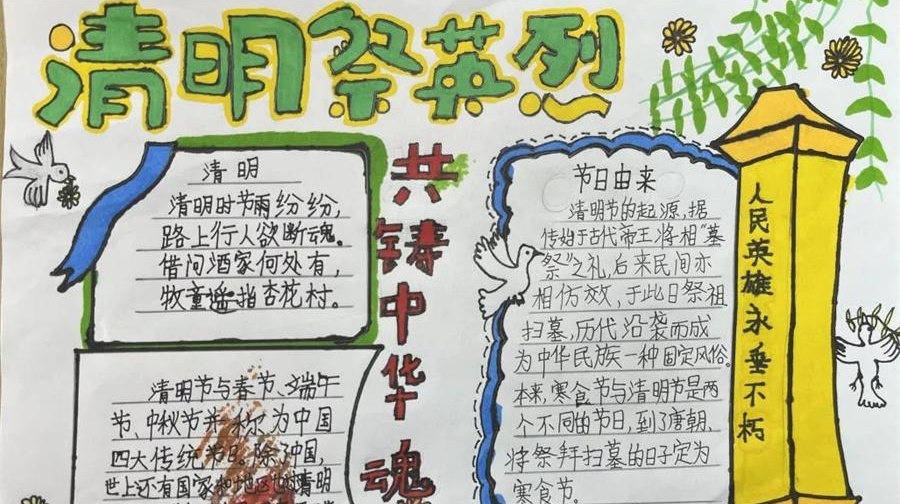 清明祭英烈
清明
清明时节雨纷纷,
路上行人欲断魂。
借问酒家何处有,
牧童遥指杏花村。
清明节与春节、端午
节、中秋节并称为中国
四大传统节日。除了中国,
世上还有国家和地区也过清明
共铸中华魂
节日由来
清明节的起源,据
传始于古代帝王将相“墓
祭”之礼,后来民间亦
相仿效,于此日祭祖
扫墓,历代沿袭而成
为中华民族一种固定风俗。
本来,寒食节与清明节是两
个不同的节日,到了唐朝,
将祭拜扫墓的日子定为
寒食节。
人民英雄永垂不朽